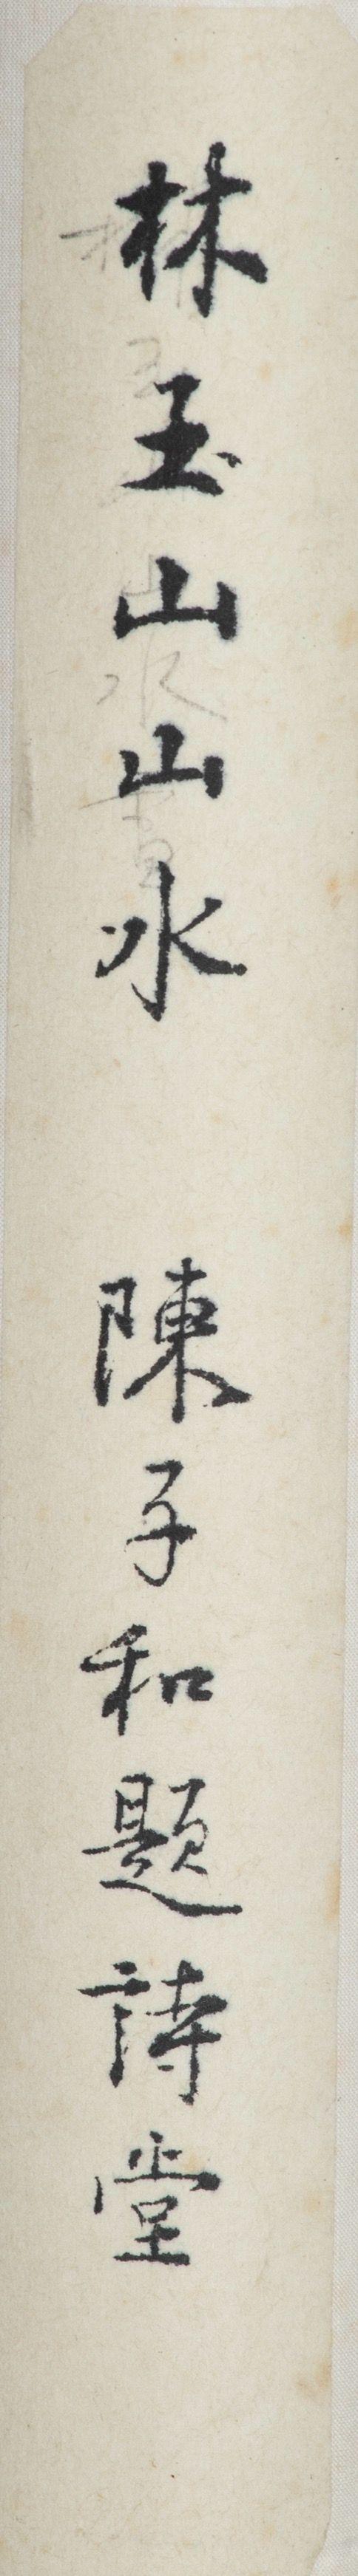 林玉山山水 陳子和題詩堂